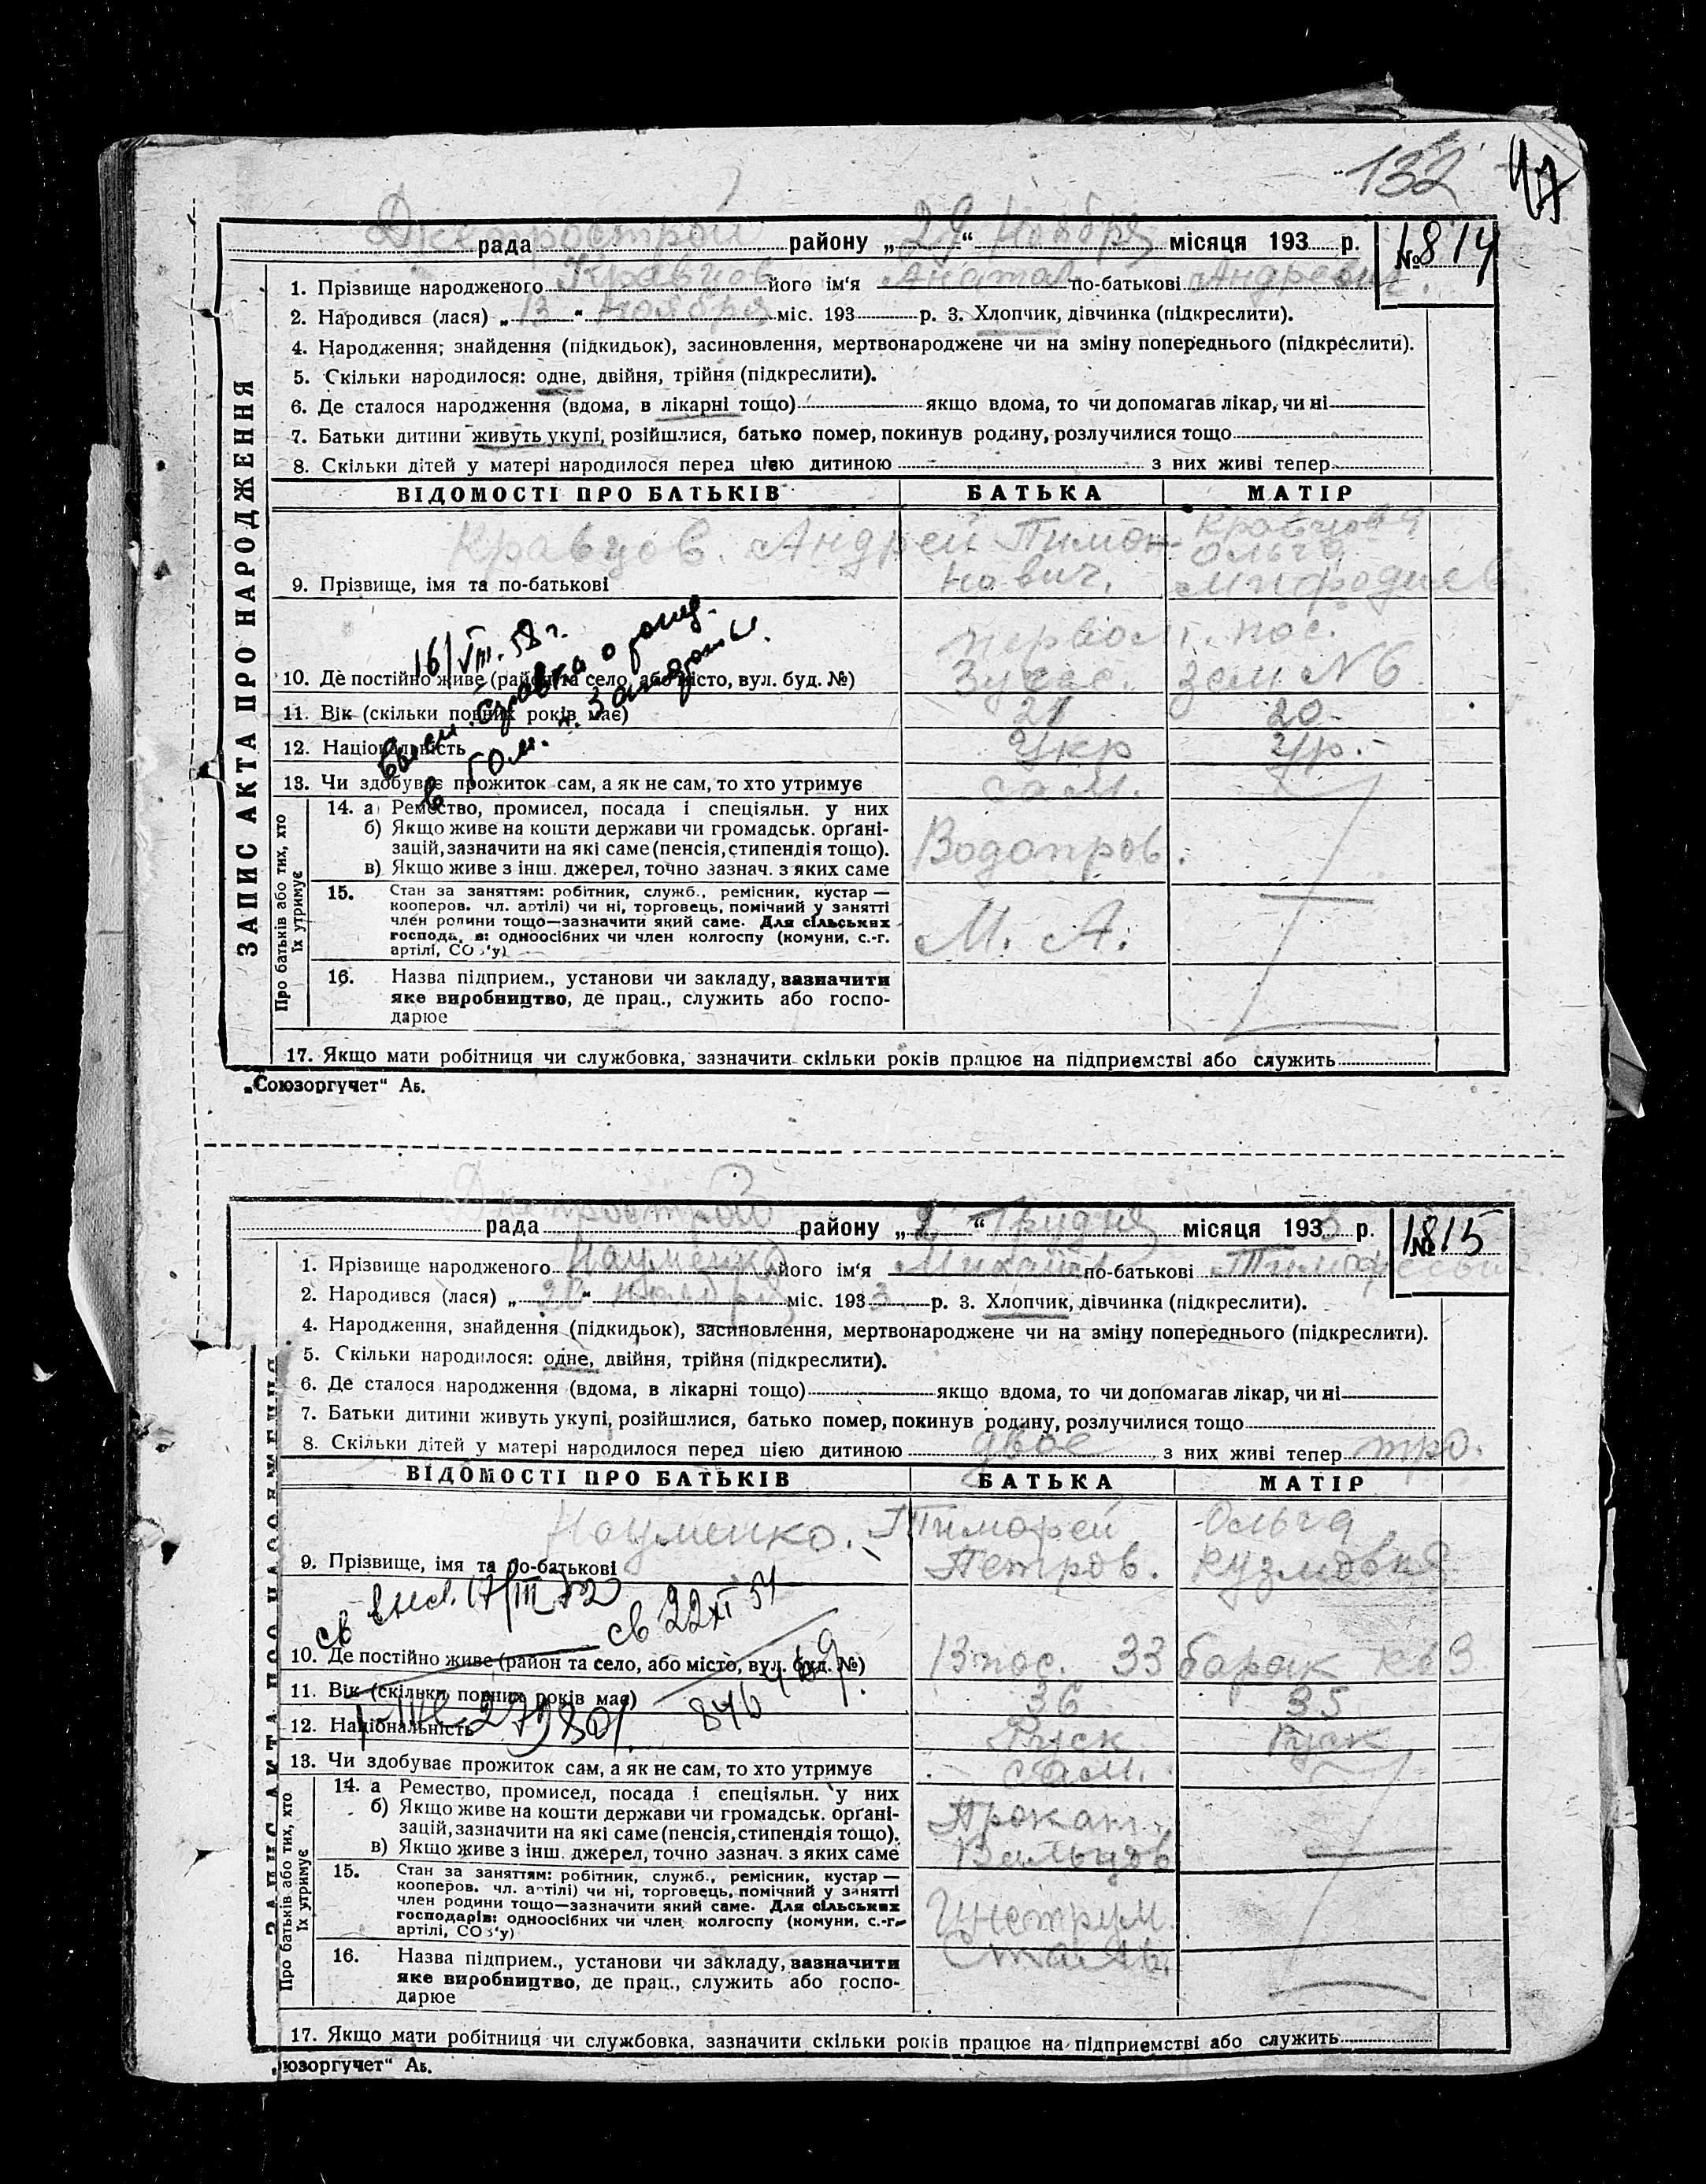 132
47
Днепрострой
рада района „29“ Ноября місяця 193 р. № 1814
1. Прізвище народженого Кравцов його ім'я Анатол по-батькові Андреевич.
2. Народився (лася) „13“ ноября міс. 193 р. 3. Хлопчик, дівчинка (підкреслити).
4. Народження; знайдення (підкидьок), засиновлення, мертвонароджене чи на зміну попереднього (підкреслити).
5. Скільки народилося: одне, двійня, трійня (підкреслити).
6. Де сталося народження (вдома, в лікарні тощо) якщо вдома, то чи допомагав лікар, чи ні
7. Батьки дитини живуть укупі, розійшлися, батько помер, покинув родину, розлучилися тощо
8. Скільки дітей у матері народилося перед цією дитиною з них живі тепер
ЗАПИС АКТА ПРО НАРОДЖЕННЯ
ВІДОМОСТІ ПРО БАТЬКІВ БАТЬКА МАТІР
Кравцов. Андрей Тимон- Кравцова
Ольга
9. Прізвище, імя та по-батькові нович.
16/VIII. 58 г.
первом. пос.
10. Де постійно живе (район та село, або місто, вул. буд. №) зем. N 6.
справка о
11. Вік (скільки повних років має) 21 20
12. Національність Укр Ур.
13. Чи здобуває прожиток сам, а як не сам, то хто утримує сам.
Про батьків або тих, хто
їх утримує
14. а) Ремество, промисел, посада і спеціяльн. у них
б) Якщо живе на кошти держави чи громадськ. орґані-
зацій, зазначити на які саме (пенсія, стипендія тощо). Водопров.
в) Якщо живе з інш. джерел, точно зазнач. з яких саме
15. Стан за заняттям: робітник, служб., ремісник, кустар —
кооперов. чл. артілі) чи ні, торговець, помічний у занятті
член родини тощо—зазначити який саме. Для сільських М. А.
господа, в: одноосібних чи член колгоспу (комуни, с.-г.
артілі, СОЗ'у)
16. Назва підприєм., установи чи закладу, зазначити
яке виробництво, де прац., служить або госпо-
дарює
17. Якщо мати робітниця чи службовка, зазначити скільки років працює на підприємстві або служить
„Союзоргучет“ Аб.
Днепрострой
рада району „2“ Грудня місяця 1933 р. № 1815
1. Прізвище народженого Науменко його ім'я Михаил по-батькові Тимофеевич
2. Народився (лася) „30“ ноября міс. 1933 р. 3. Хлопчик, дівчинка (підкреслити).
4. Народження, знайдення (підкидьок), засиновлення, мертвонароджене чи на зміну попереднього (підкреслити).
5. Скільки народилося: одне, двійня, трійня (підкреслити).
6. Де сталося народження (вдома, в лікарні тощо) якщо вдома, то чи допомагав лікар, чи ні
7. Батьки дитини живуть укупі, розійшлися, батько помер, покинув родину, розлучилися тощо
8. Скільки дітей у матері народилося перед цією дитиною двое з них живі тепер тро.
ВІДОМОСТІ ПРО БАТЬКІВ БАТЬКА МАТІР
Науменко. Тимофей Ольга
9. Прізвище, імя та по-батькові Петров. Кузмовна
св 22 XI 51
10. Де постійно живе (район та село, або місто, вул. буд. №) 13 пос. 33 барак кв 3
11. Вік (скільки повних років має) 36 35
846
12. Національність Руск Руск
13. Чи здобуває прожиток сам, а як не сам, то хто утримує сам.
Про батьків або тих, хто
їх утримує
14. а Ремество, промисел, посада і спеціяльн. у них
б) Якщо живе на кошти держави чи громадськ. орґані- Прокат.
зацій, зазначити на які саме (пенсія, стипендія тощо).
в) Якщо живе з інш. джерел, точно зазнач. з яких саме Вальцов
15. Стан за заняттям: робітник, служб., ремісник, кустар —
кооперов. чл. артілі) чи ні, торговець, помічний у занятті
член родини тощо—зазначити який саме. Для сільських
господарів: одноосібних чи член колгоспу (комуни, с.-г. Инструм.
артілі, СОЗ'у)
16. Назва підприєм., установи чи закладу, зазначити Сталь.
яке виробництво, де прац., служить або госпо-
дарює
17. Якщо мати робітниця чи службовка, зазначити скільки років працює на підприємстві або служить
юзоргучет“ Аб.